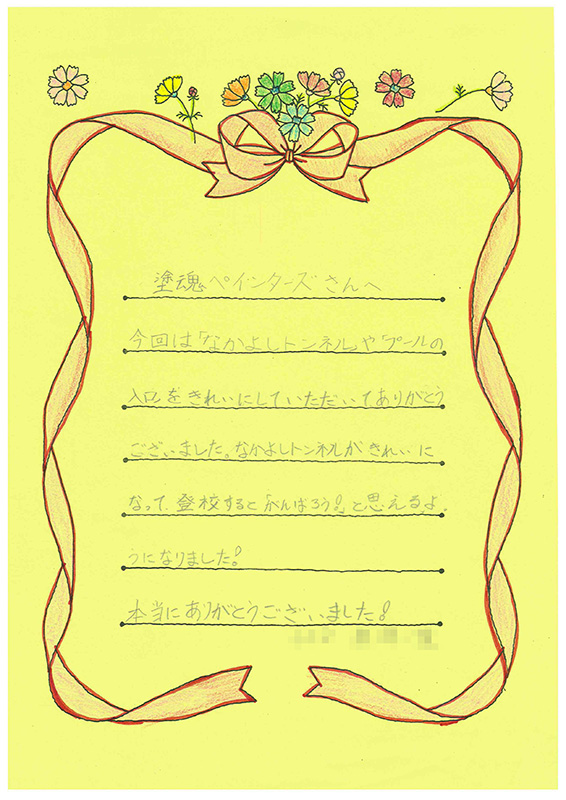 塗魂ペインターズさんへ
今回は「なかよしトンネル」や「プールの
入口」をきれいにしていただいてありがとう
ございました。なかよしトンネルがきれいに
なって、登校すると「がんばろう!」と思えるよ
うになりました!
本当にありがとうございました!